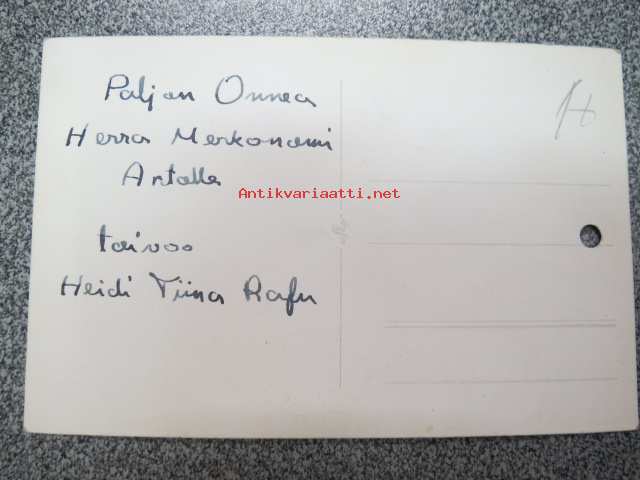 Paljon Onnea
Herra Merkonomi
Antalle
Antikvariaatti.net
toivoo
Heidi Tiina Rafu
H